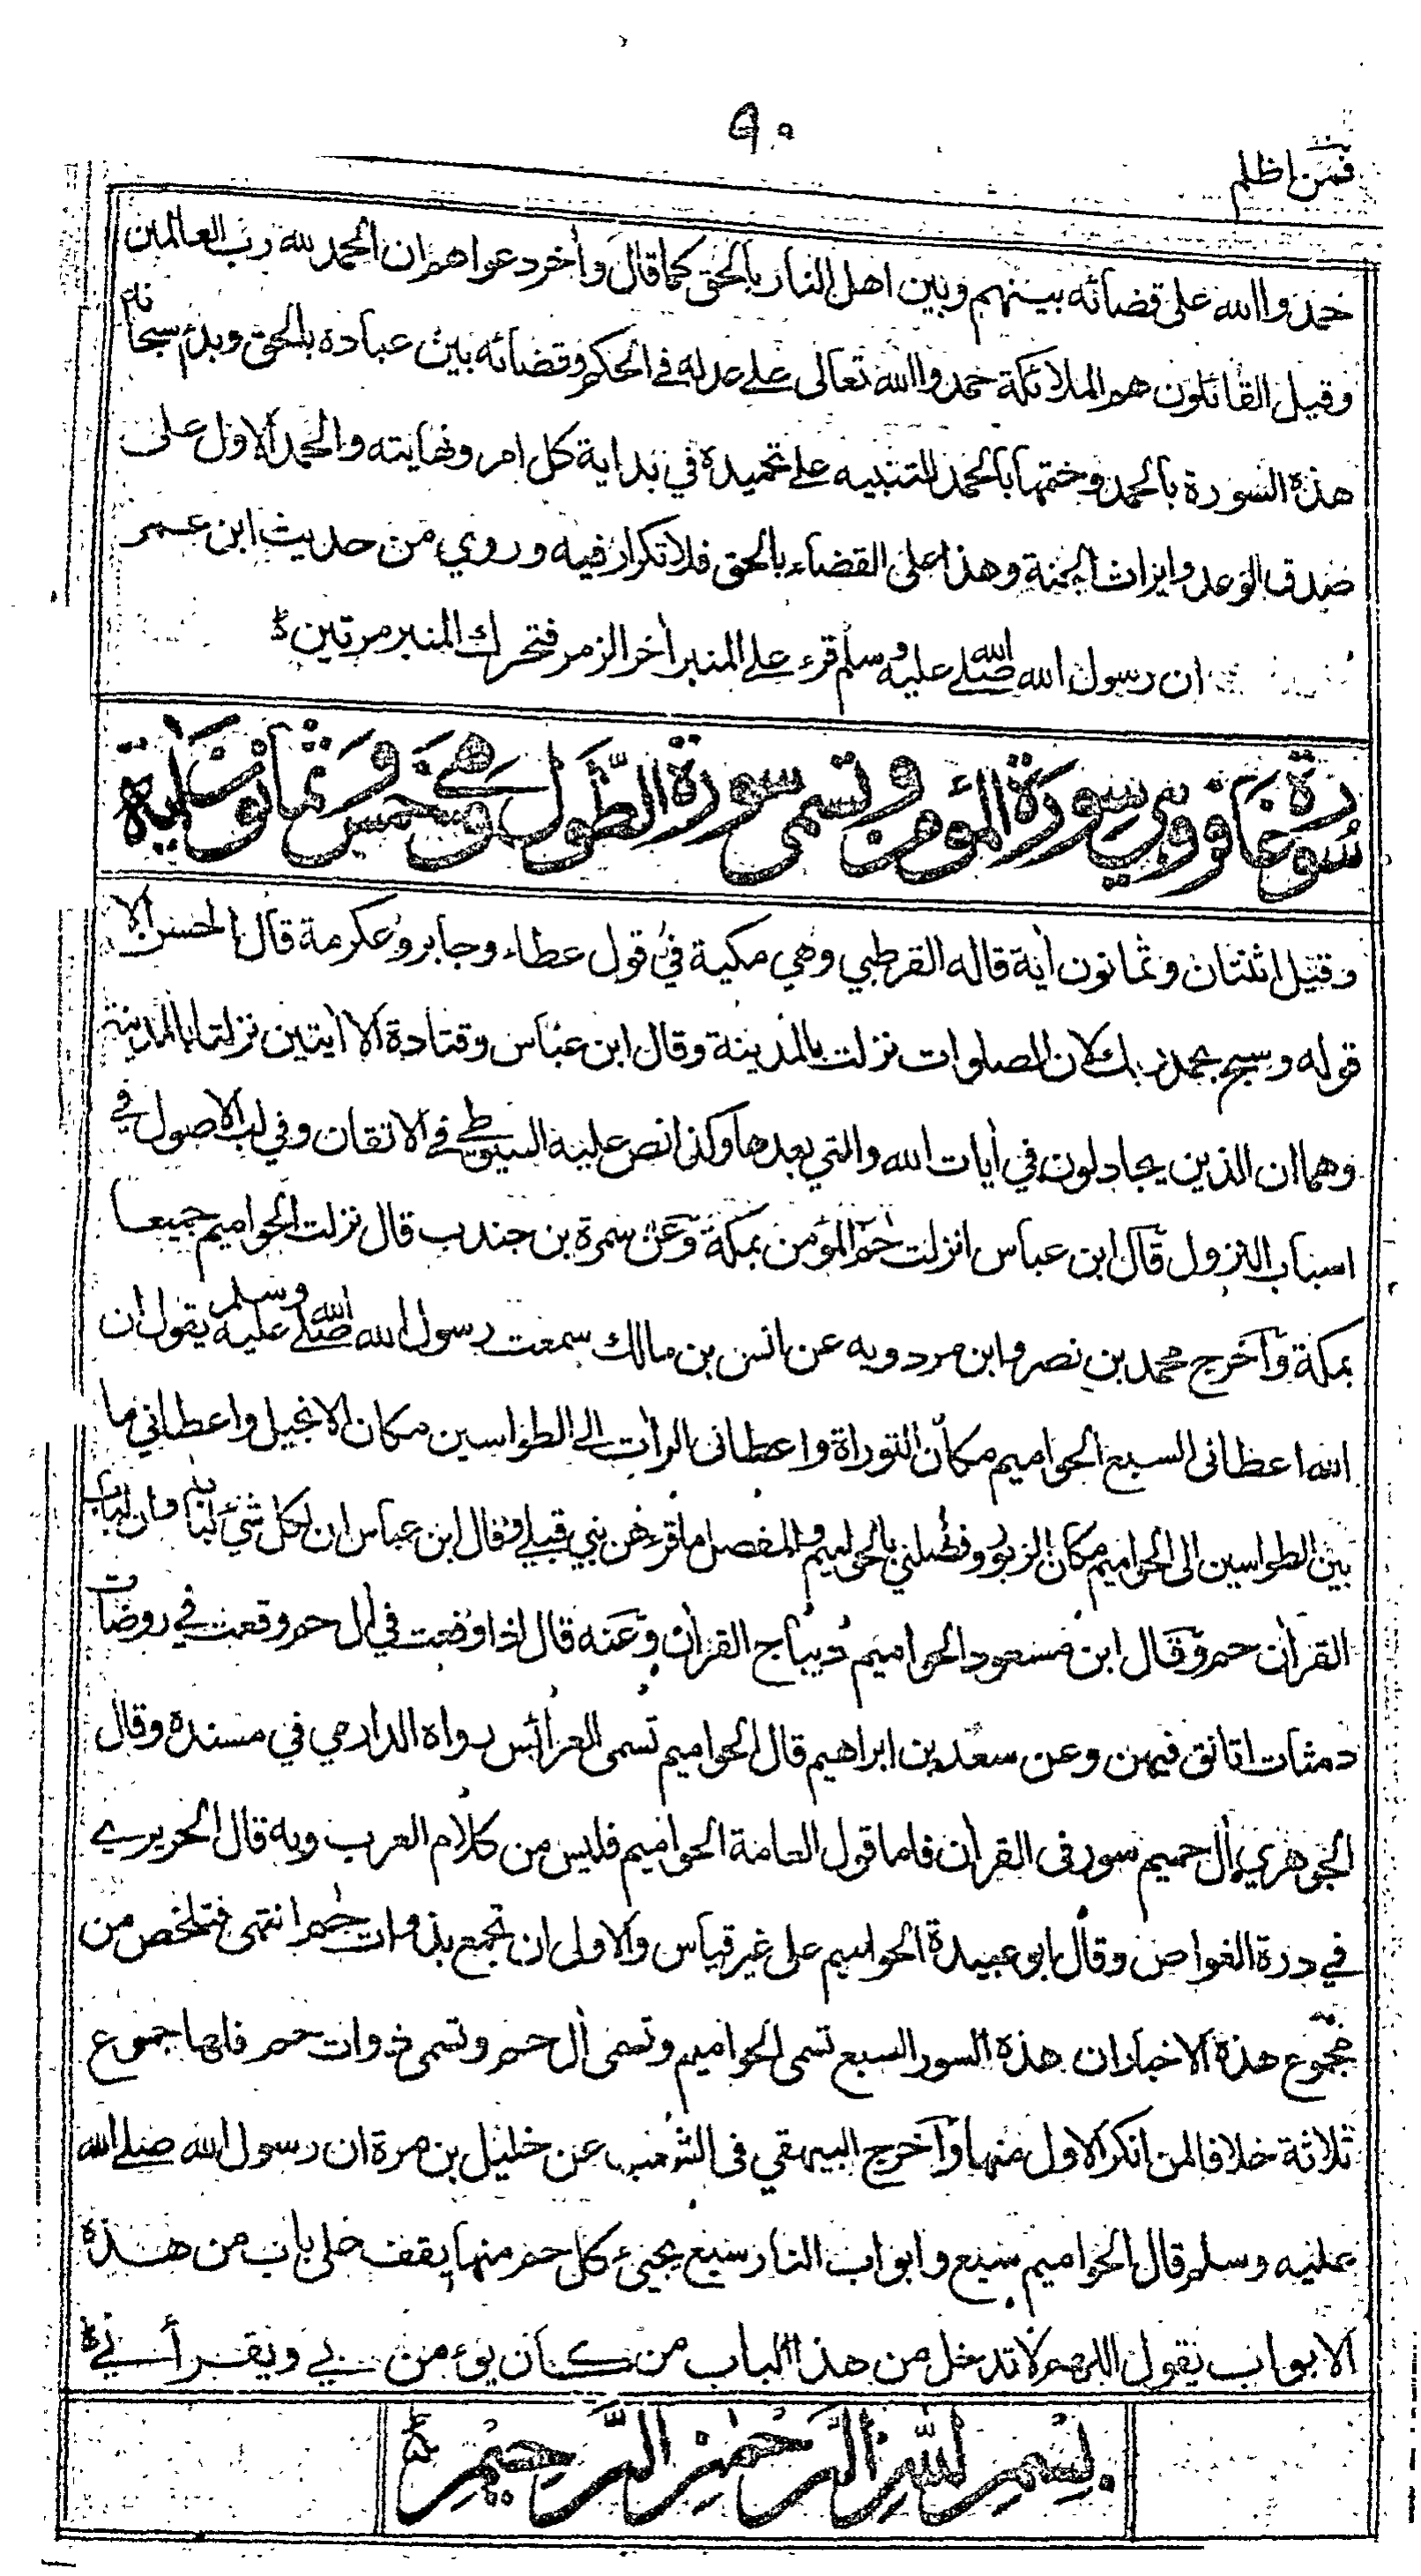 ٩٠
فمن اظلم
حمدوا الله على قضائه بينهم وبين اهل النار بالحق كما قال وأخر دعواهم ان الحمد لله رب العالمين
وقيل القائلون هم الملائكة حمدوا الله تعالى على عدله في الحكم وقضائه بين عباده بالحق وبدئ سبحانه
هذه السورة بالحمد وختمها بالحمد للتنبيه على تحميده في بداية كل امر ونهايته والحمد الاول على
صدق الوعد وايراث الجنة وهذا على القضاء بالحق فلا تكرار فيه وروي من حديث ابن عمر
ان رسول الله صلى الله عليه وسلم قرء على المنبر أخر الزمر فتحرك المنبر مرتين
سورة غافر وهي سورة المؤمن وتسمى سورة الطول وهي خمس وثمانون أية
وقيل اثنتان وثمانون أية قاله القرطبي وهي مكية في قول عطاء وجابر وعكرمة قال الحسن الا
قوله وسبح بحمد ربك لان الصلوات نزلت بالمدينة وقال ابن عباس وقتادة الا أيتين نزلتا بالمدينة
وهما ان الذين يجادلون في أيات الله والتي بعدها وكذا نص عليه السيوطي في الاتقان وفي لب الاصول في
اسباب النزول قال ابن عباس انزلت حم المؤمن بمكة وعن سمرة بن جندب قال نزلت الحواميم جميعا
بمكة وأخرج محمد بن نصر وابن مردويه عن انس بن مالك سمعت رسول الله صلى الله عليه وسلم يقول ان
الله اعطانى السبع الحواميم مكان التوراة واعطانى الرأت الى الطواسين مكان الانجيل واعطاني ما
بين الطواسين الى الحواميم مكان الزبور وفضلني بالحواميم والمفصل ما قرءهن نبي قبلي وقال ابن عباس ان لكل شيء لبابا وان لباب
القرأن حم وقال ابن مسعود الحواميم ديباج القرأن وعنه قال اذا وقعت في أل حم وقعت في روضات
دمثات اتانق فيهن وعن سعد بن ابراهيم قال الحواميم تسمى العرائس رواه الدارمي في مسنده وقال
الجوهري أل حميم سور فى القرأن فاما قول العامة الحواميم فليس من كلام العرب وبه قال الحريري
في درة الغواص وقال ابو عبيدة الحواميم على غير قياس والاولى ان تجمع بذوات حم انتهى فتلخص من
مجموع هذه الاخبار ان هذه السور السبع تسمى الحواميم وتسمى أل حم وتسمى ذوات حم فلها جموع
ثلاثة خلافا لمن انكر الاول منها وأخرج البيهقي فى الشعب عن خليل بن مرة ان رسول الله صلى الله
عليه وسلم قال الحواميم سبع وابواب النار سبع يجيئ كل حم منها يقف على باب من هذه
الابواب يقول اللهم لا تدخل من هذا الباب من كان يؤمن بي ويقرأني
بسم الله الرحمن الرحيم